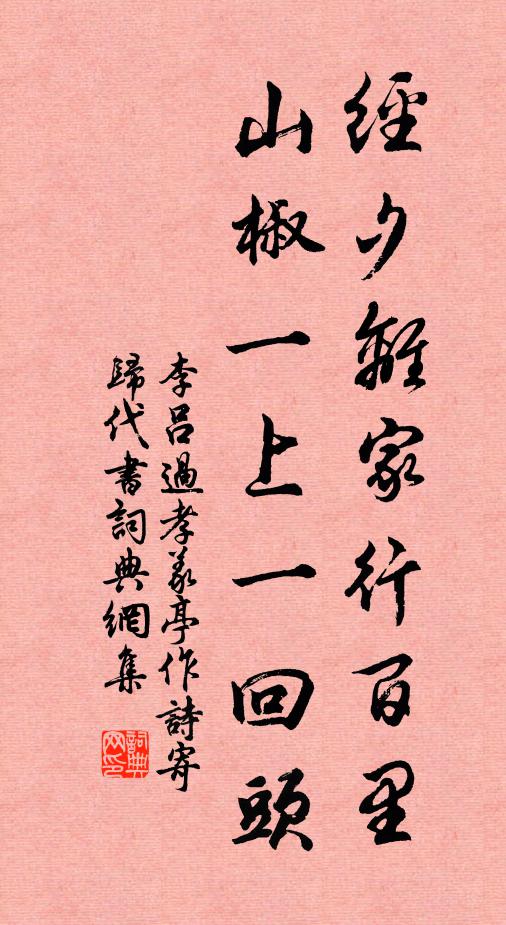 經夕離家行百里
山椒一上一回頭
李呂過孝義亭作詩寄
歸代書詞典網集
詞典网印